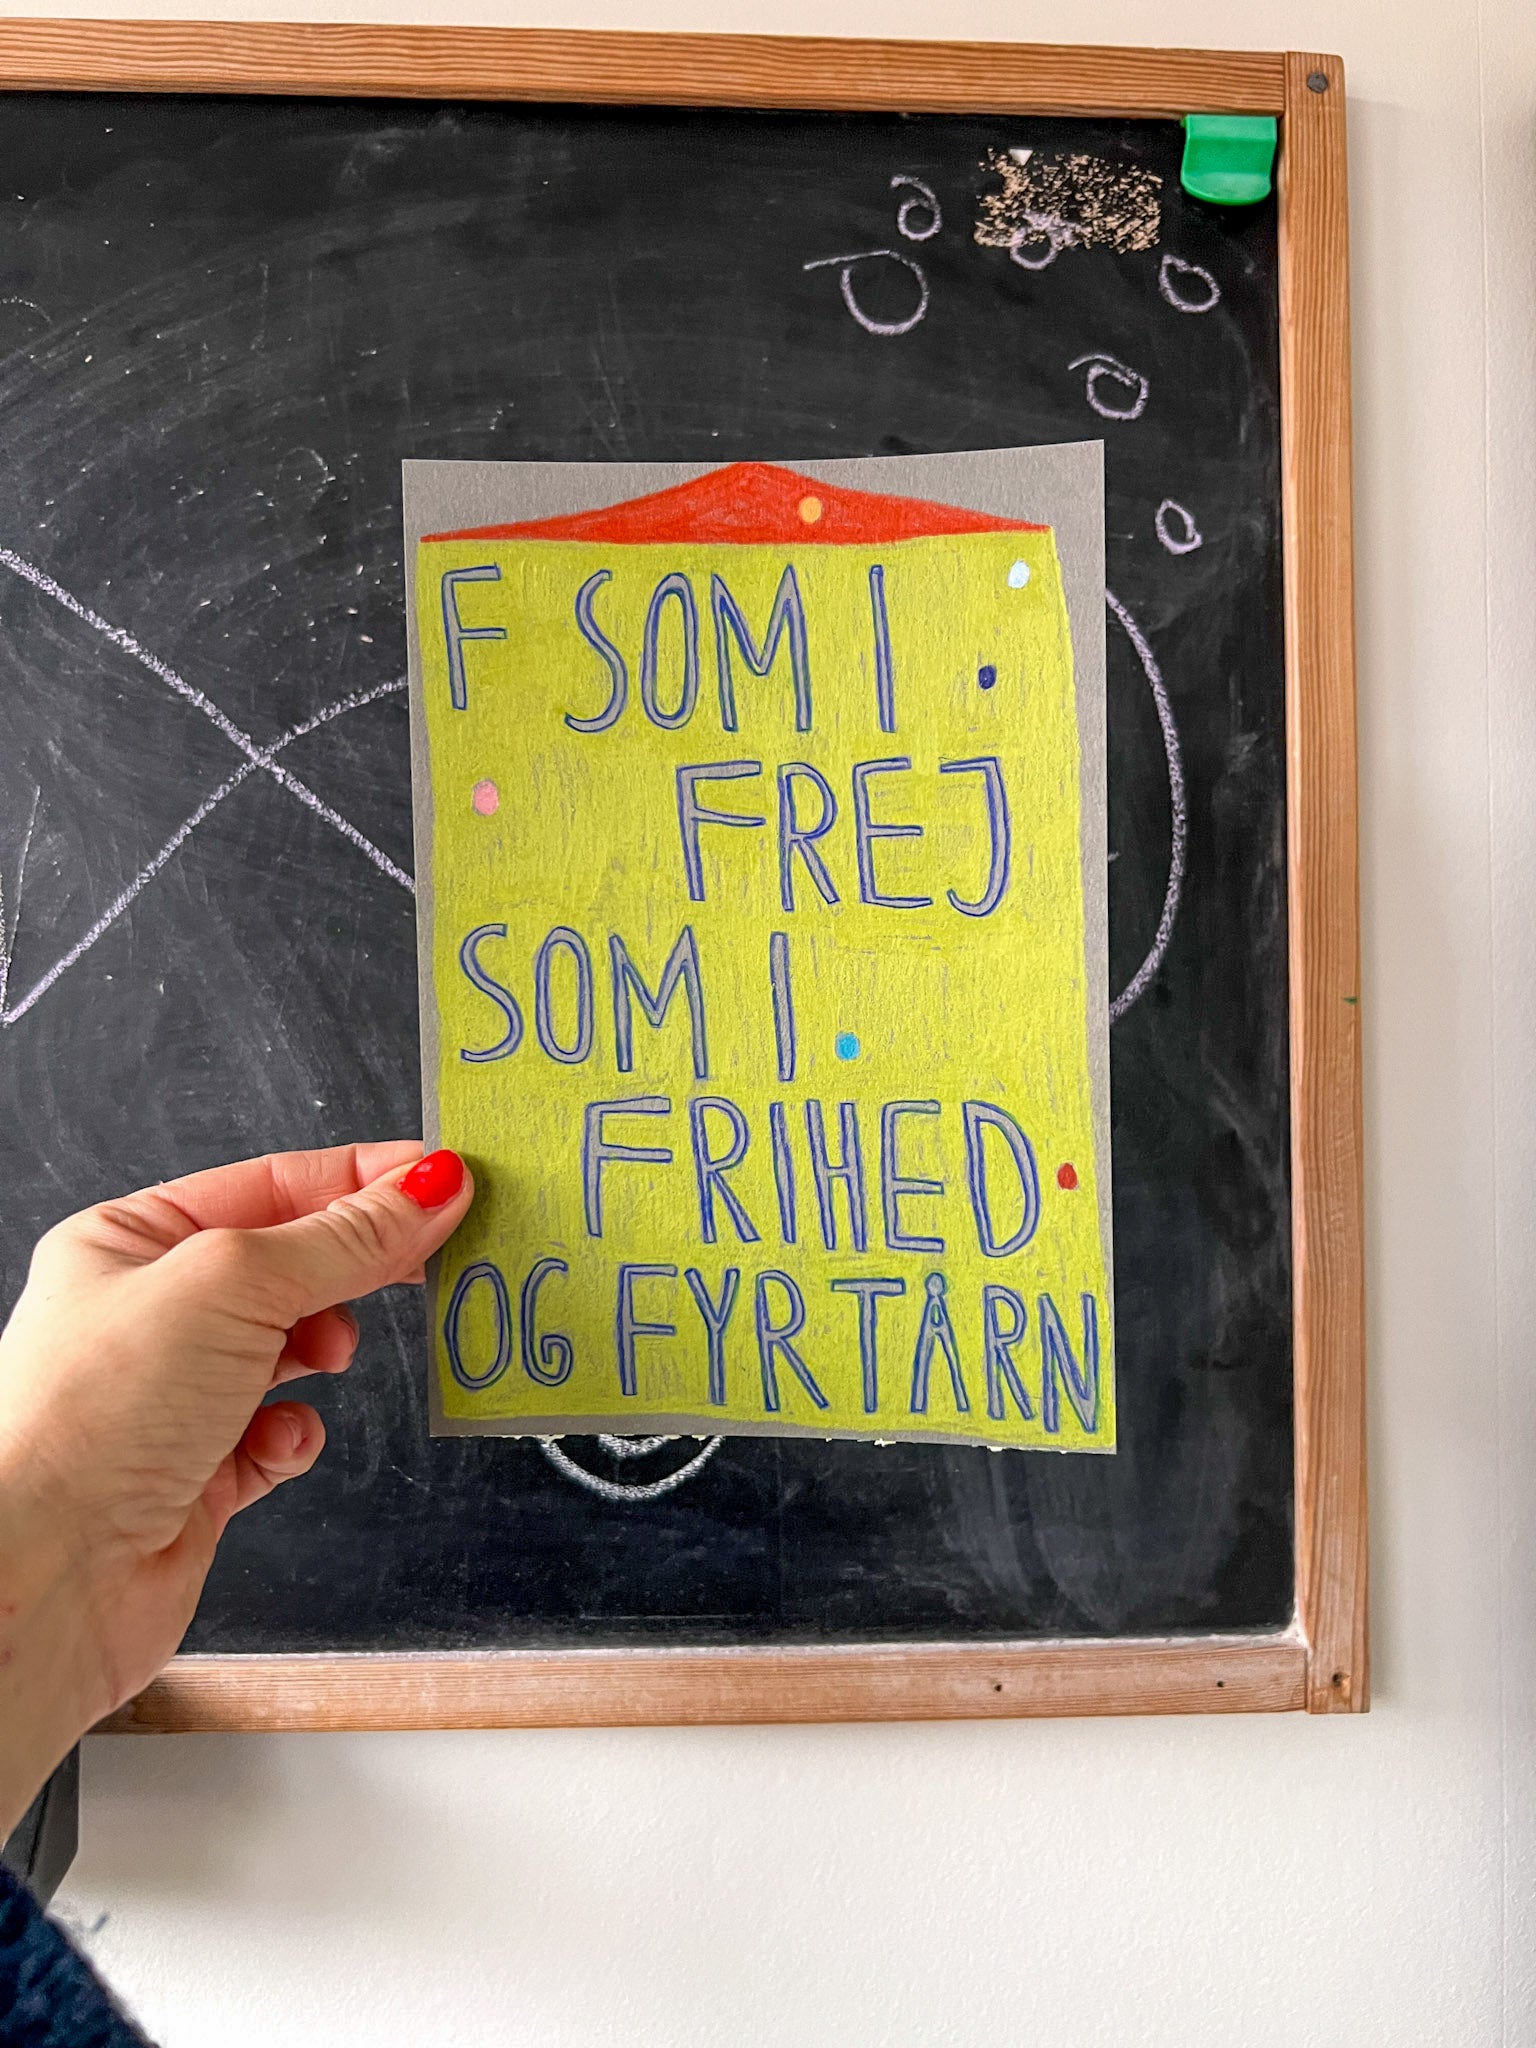 F SOM I
FREJ
SOM I
FRIHED
OG FYRTÅRN